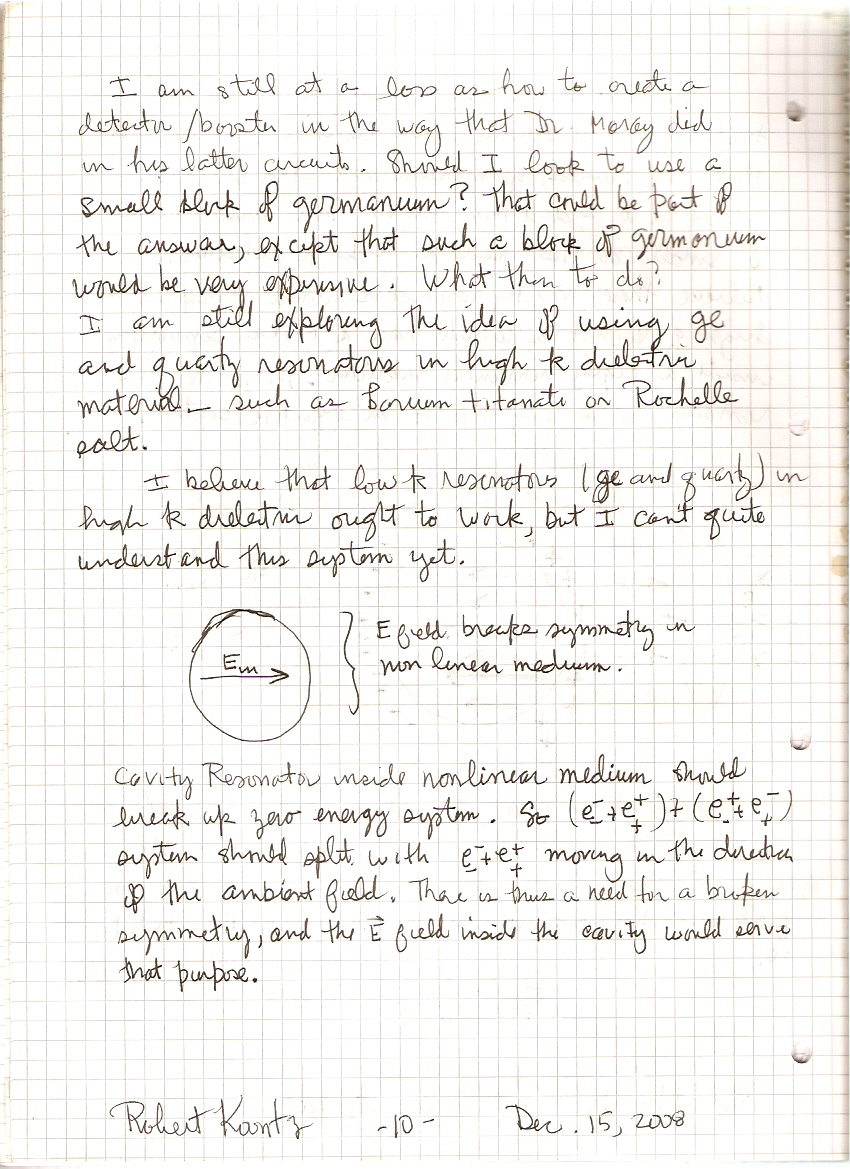 I am still at a loss as how to create a
detector/booster in the way that Dr. Moray did
in his latter circuits. Should I look to use a
small block of germanium? That could be part of
the answer, except that such a block of germanium
would be very expensive. What then to do?
I am still exploring the idea of using ge
and quartz resonators in high k dielectric
material – such as Barium titanate or Rochelle
salt.
I believe that low k resonators (ge and quartz) in
high k dielectric ought to work, but I can't quite
understand this system yet.
E field breaks symmetry in
non linear medium.
Em
Cavity Resonator inside nonlinear medium should
break up zero energy system. So (e⁻₋ + e⁺₊) + (e⁺₋ + e⁻₊)
system should split with e⁻₋ + e⁺₊ moving in the direction
of the ambient field. There is thus a need for a broken
symmetry, and the E⃗ field inside the cavity would serve
that purpose.
Robert Kantz -10- Dec. 15, 2008